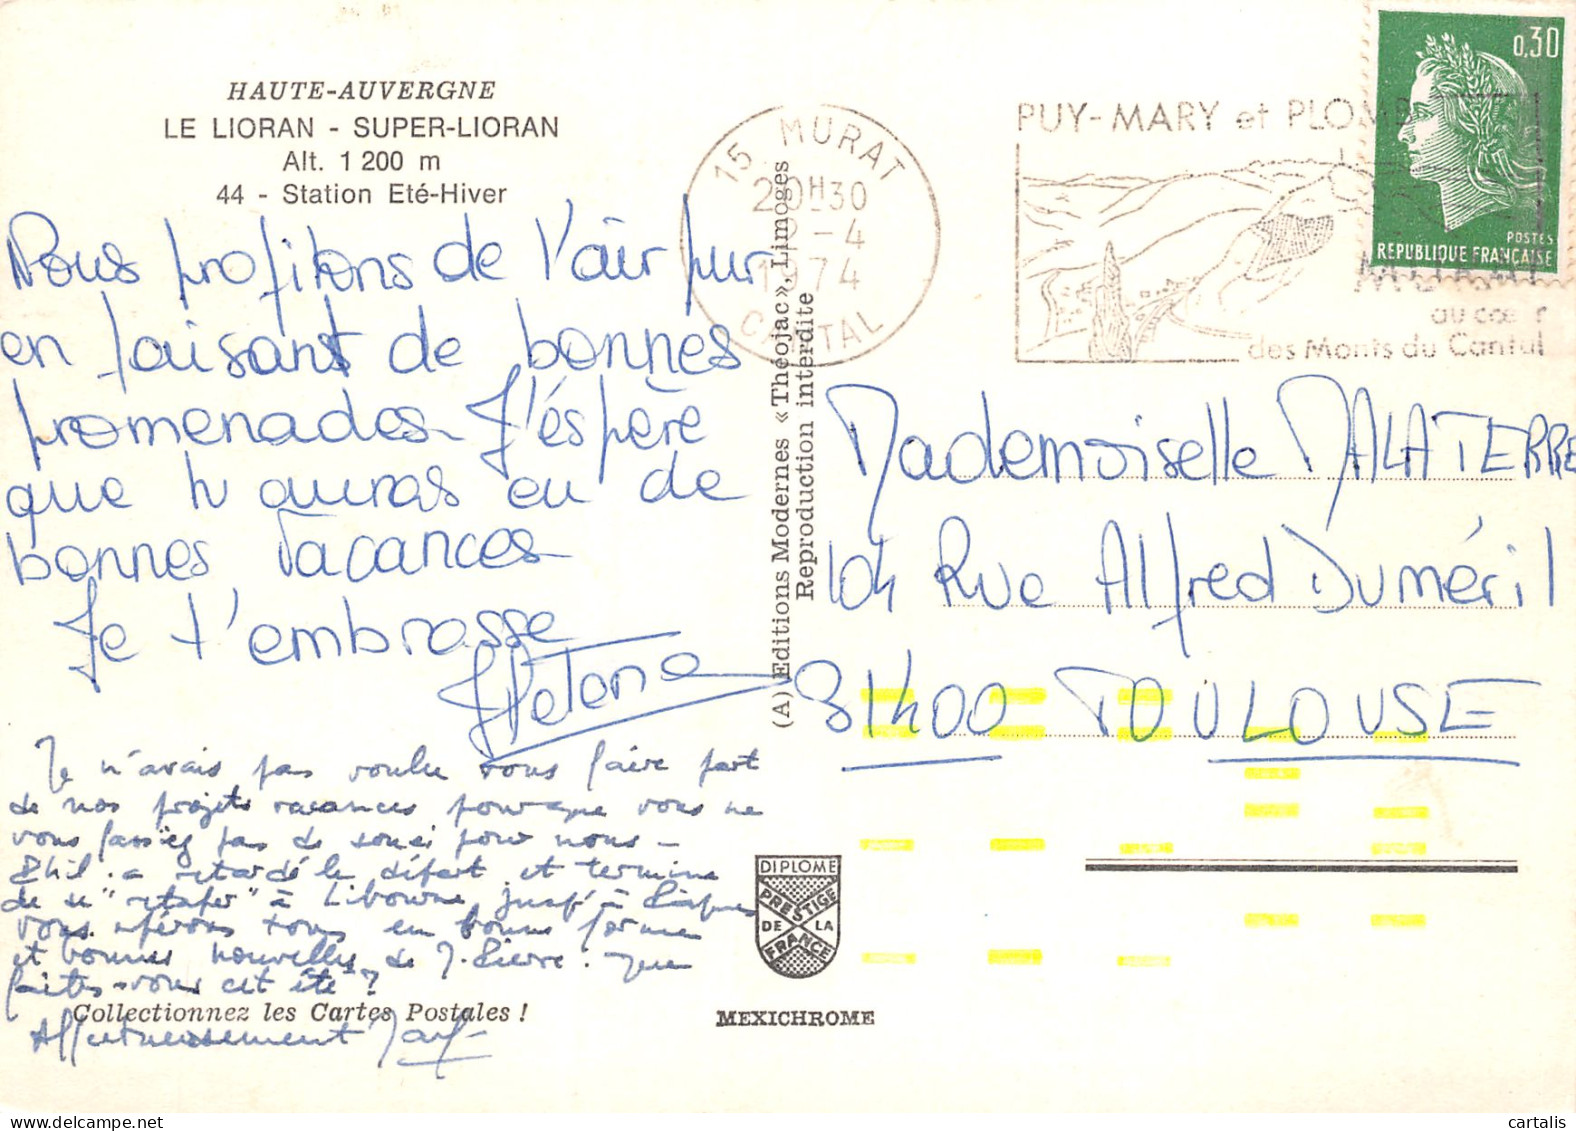 HAUTE-AUVERGNE
LE LIORAN - SUPER-LIORAN
Alt. 1 200 m
44 - Station Eté-Hiver
Nous profitons de l'air pur
en faisant de bonnes
promenades J'éspère
que tu auras eu de
bonnes Vacances
Je t'embrasse
Hélène
Je n'avais pas voulu vous faire part
de nos projets vacances pour que vous ne
vous fassiez pas de souci pour nous -
Phil. a retardé le départ et termine
de se "retaper" à Libourne jusqu'à Pâques
Vous espérons tous en bonne forme
et bonnes nouvelles de J. Pierre. Que
faites-vous cet été ?
Collectionnez les Cartes Postales !
Affectueusement
(A) Editions Modernes « Théojac », Limoges
Reproduction interdite
15 MURAT
20H30
-4
1974
CANTAL
PUY-MARY et PLOMB
au cœur
des Monts du Cantal
0,30
POSTES
REPUBLIQUE FRANÇAISE
Mademoiselle MALATERRE
104 Rue Alfred Duméril
31400 TOULOUSE
DIPLOME
PRESTIGE
DE LA
FRANCE
MEXICHROME
cartalis